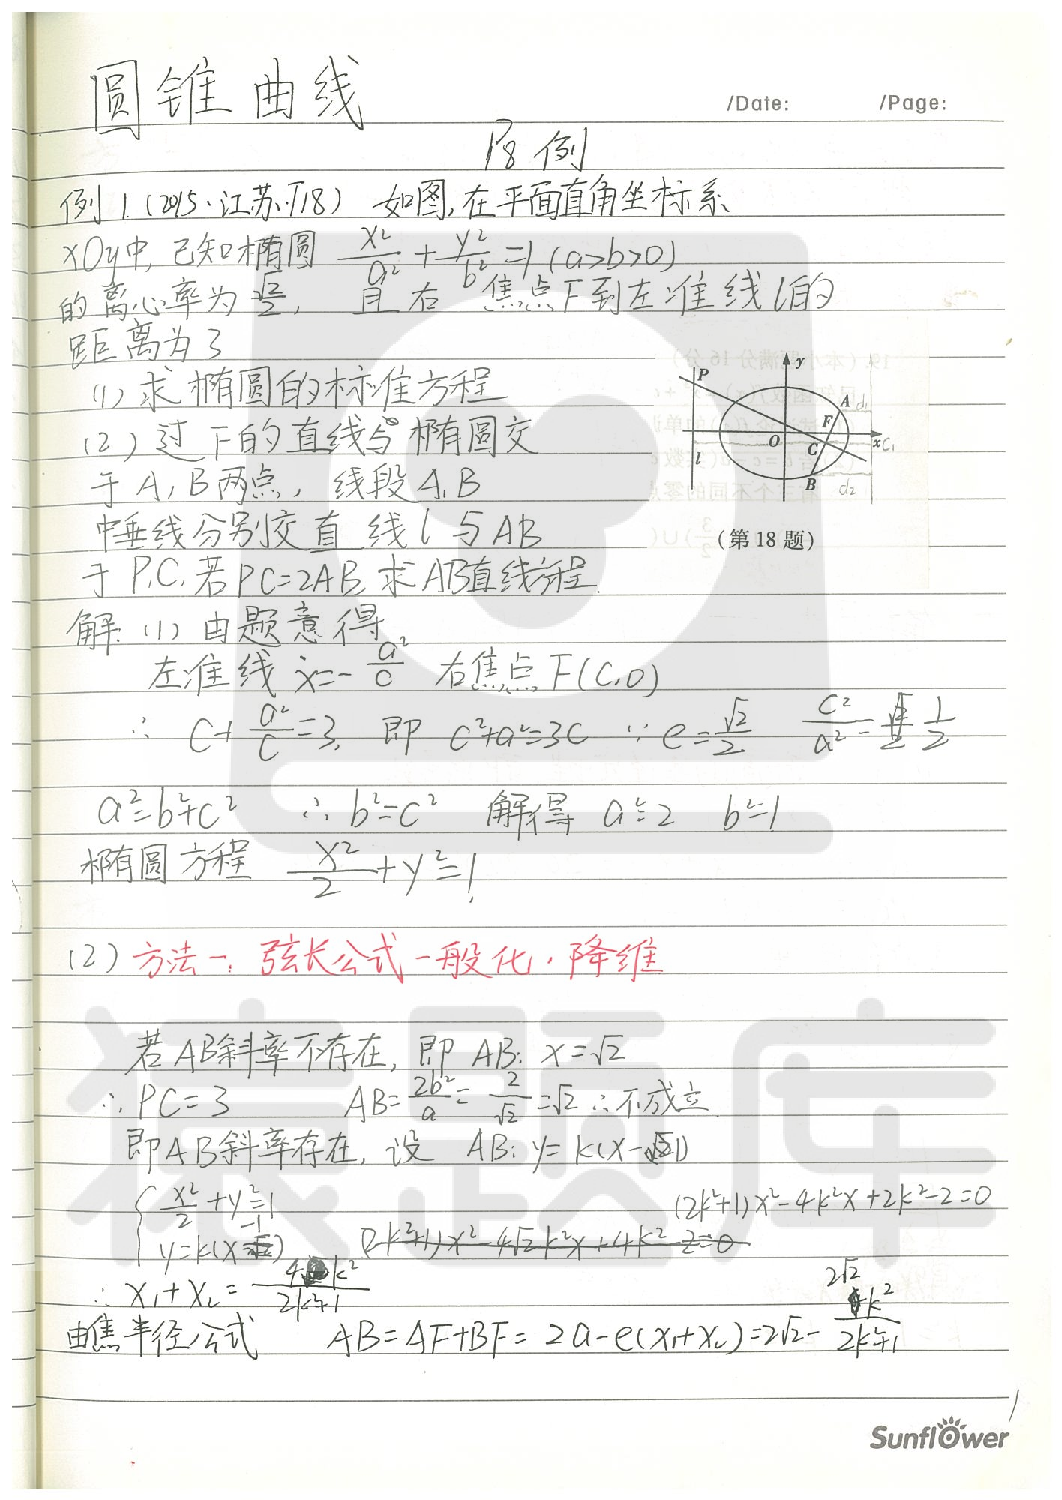 圆锥曲线
/Date: /Page:
P8 例
例1.(2015·江苏·T18) 如图,在平面直角坐标系
xOy中,已知椭圆 x²/a² + y²/b² =1 (a>b>0)
的离心率为 √2/2, 且右焦点F到左准线l的
距离为3
(1)求椭圆的标准方程
(2)过F的直线与椭圆交
于A,B两点, 线段A,B
中垂线分别交直线l与AB
于P,C,若PC=2AB,求AB直线方程
P y A d₁ F O C x C₁ l B d₂
(第18题)
解:(1)由题意得
左准线 x=-a²/c 右焦点F(C,0)
∴ C+a²/c=3, 即 c²+a²=3c ∵e=√2/2 c²/a²=1/2
a²=b²+c² ∴b²=c² 解得 a²=2 b²=1
椭圆方程 x²/2+y²=1
(2)方法一:弦长公式一般化·降维
若AB斜率不存在,即AB:x=√2
∴PC=3 AB=2b²/a=2/√2=√2 ∴不成立
即AB斜率存在,设 AB:y=k(x-1)
x²/2+y²=1 (2k²+1)x²-4k²x+2k²-2=0
y=k(x-1) (2k²+1)x²-4√2k²x+4k²-2=0
∴x₁+x₂=4k²/2k²+1
由焦半径公式 AB=AF+BF=2a-e(x₁+x₂)=2√2-2√2k²/2k²+1
1
Sunflower
猿题库